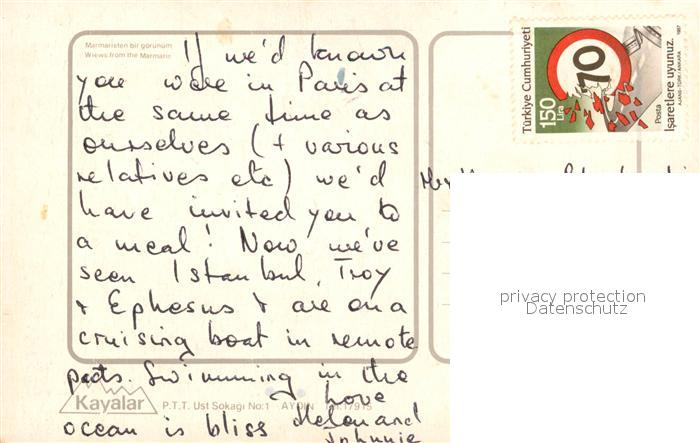 Marmaristen bir görünüm
Wiews from the Marmaris
If we'd known
you were in Paris at
the same time as
ourselves (+ various
relatives etc) we'd
have invited you to
a meal! Now we've
seen Istanbul, Troy
& Ephesus & are on a
cruising boat in remote
parts. Swimming in the
ocean is bliss
Love
Helen and
Johnnie
Kayalar
P.T.T. Ust Sokağı No:1 AYDIN Tel.17915
Türkiye Cumhuriyeti
150
Lira
70
Posta
İşaretlere uyunuz.
AJANS-TÜRK / ANKARA
1987
privacy protection
Datenschutz